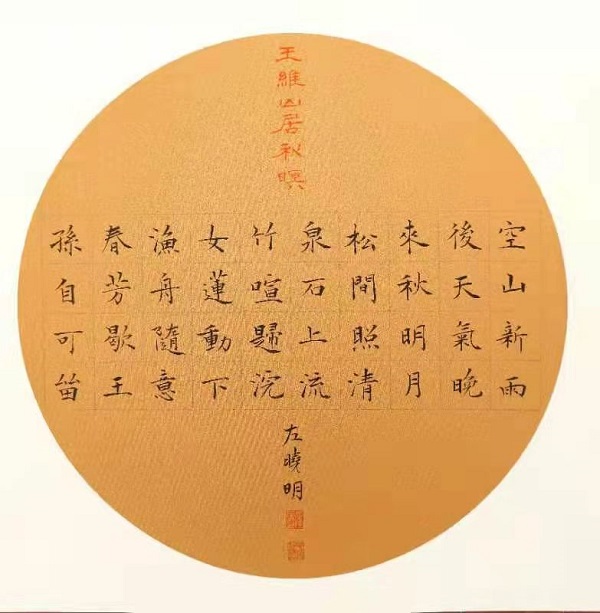 王維山居秋暝
空山新雨
後天氣晚
來秋明月
松間照清
泉石上流
竹喧歸浣
女蓮動下
漁舟隨意
春芳歇王
孫自可留
左曉明